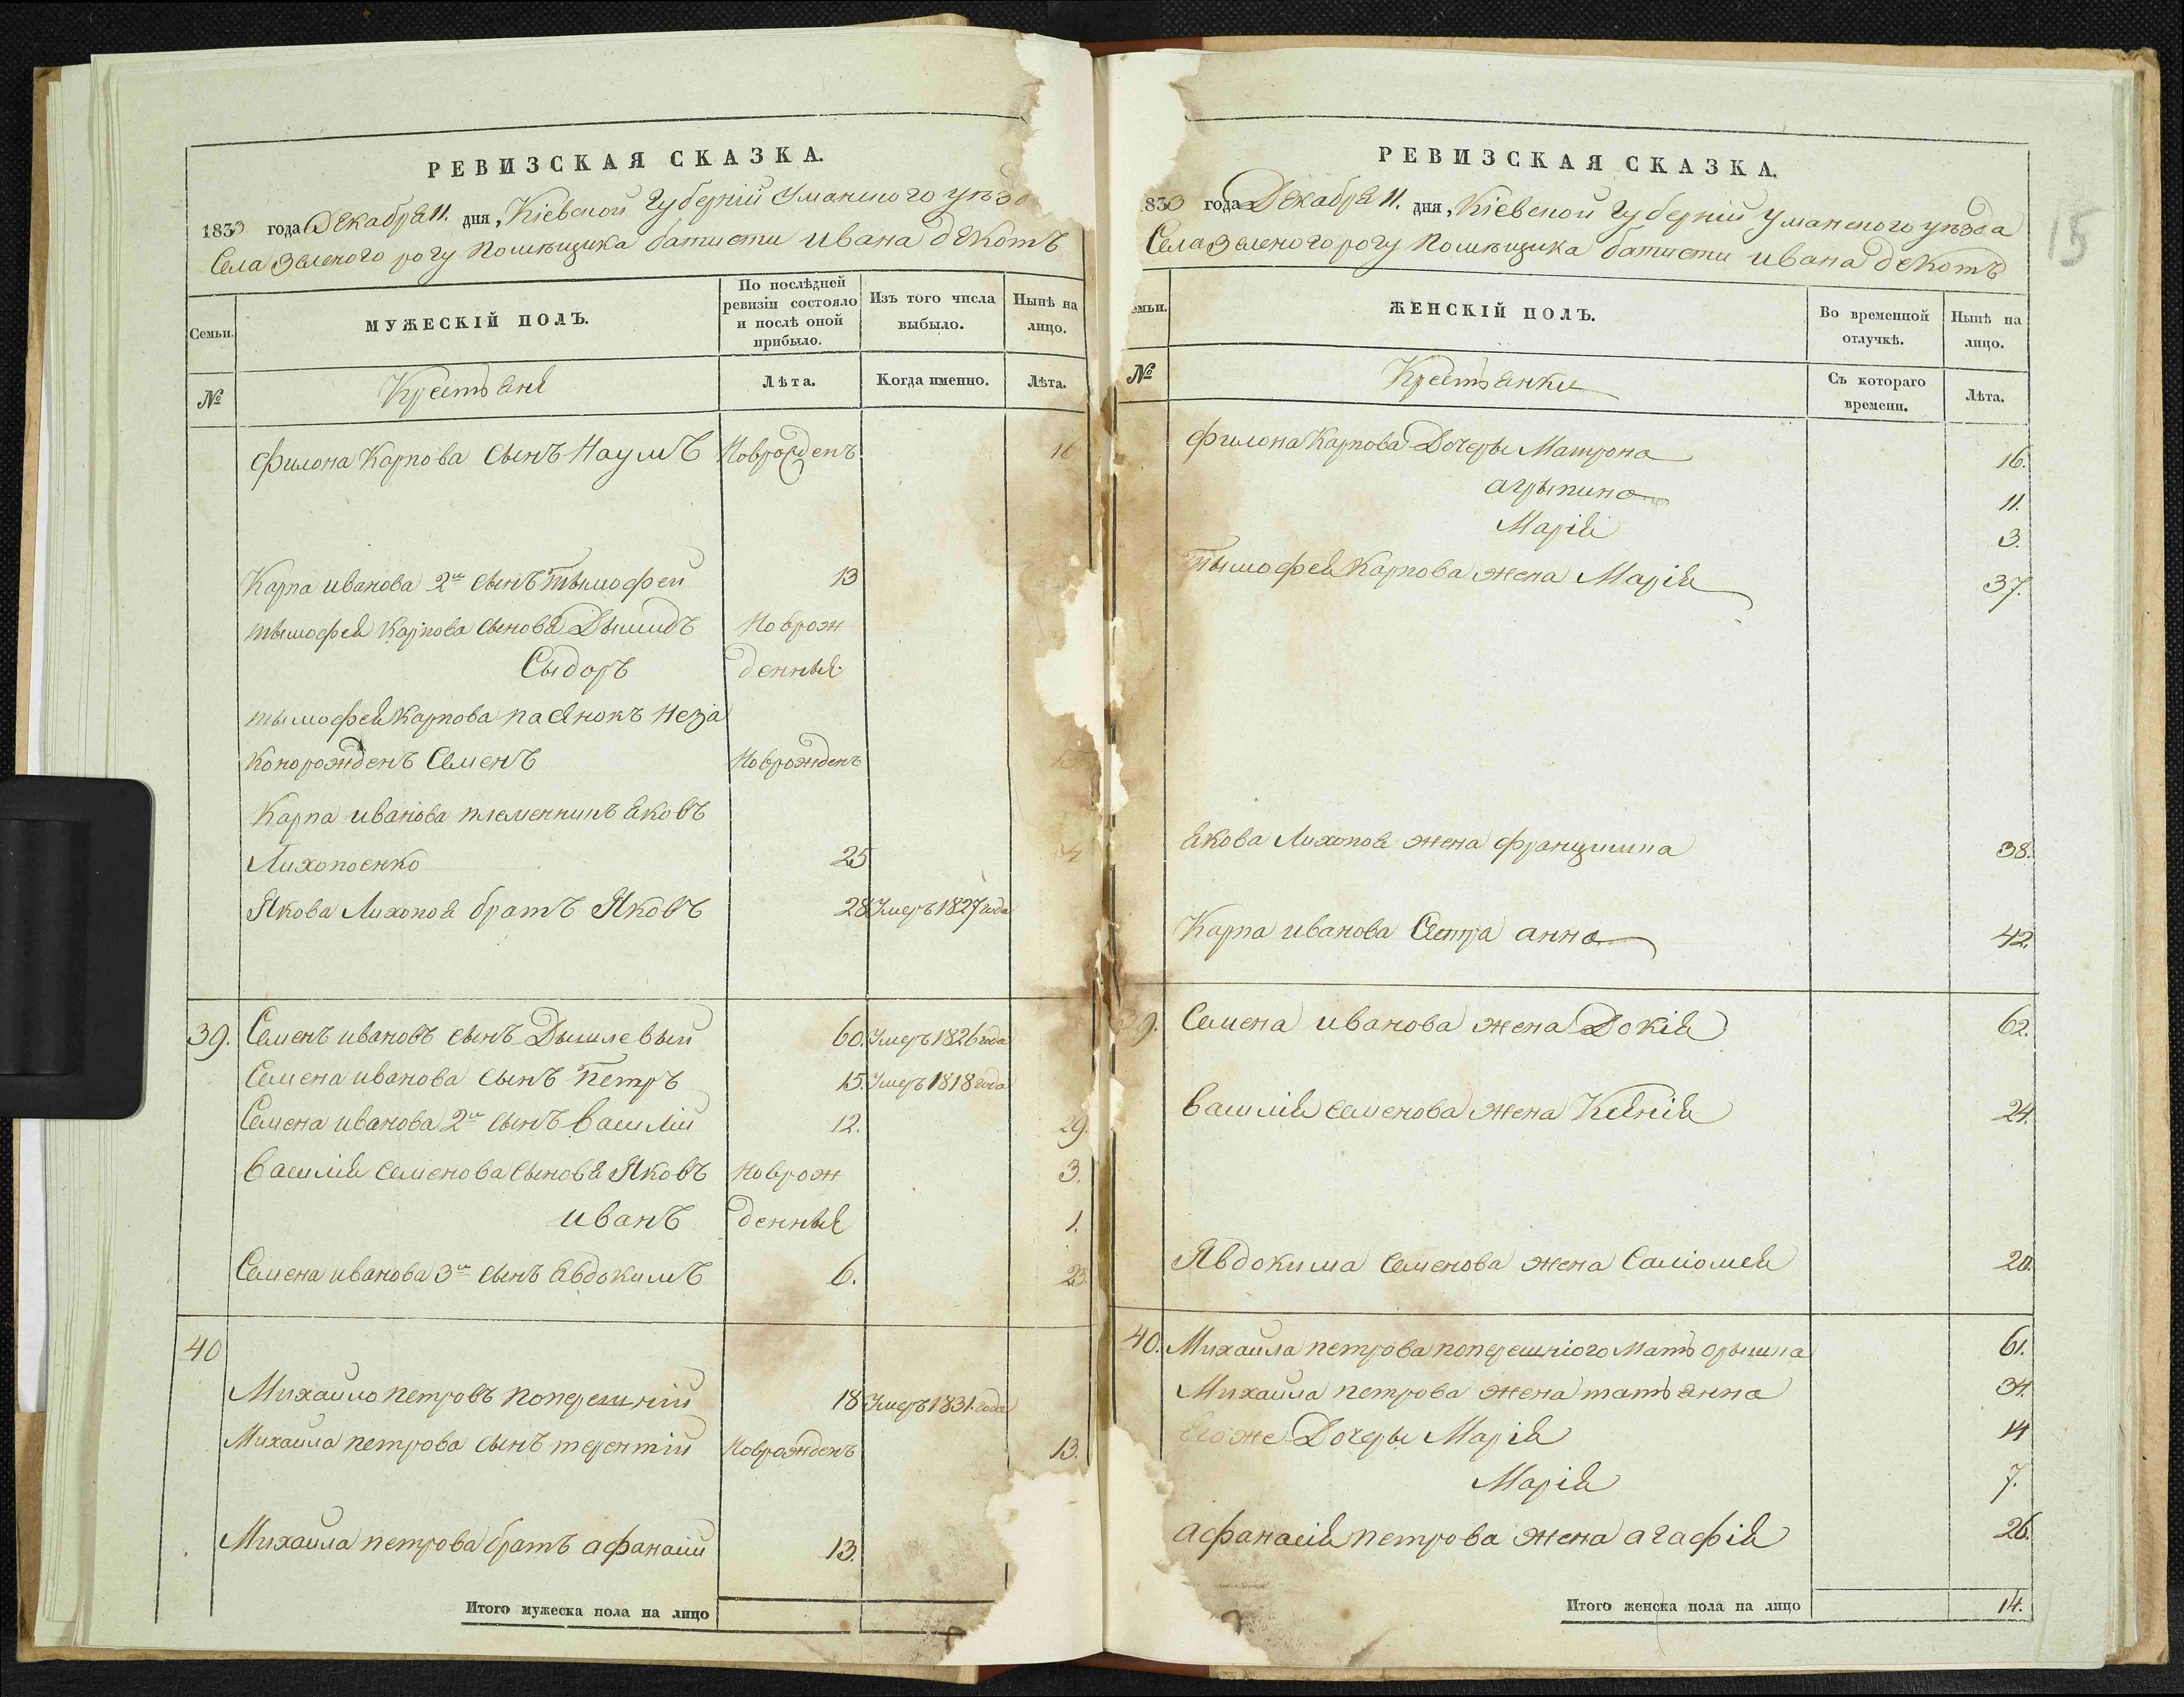 РЕВИЗСКАЯ СКАЗКА.
1833 года Декабря 11. дня, Кіевской Губерніи Уманского уѣзд
Села Зеленого рогу Помѣщика батисти Ивана декотъ
Семьи.
МУЖЕСКІЙ ПОЛЪ.
По послѣдней ревизіи состояло и послѣ оной прибыло.
Изъ того числа выбыло.
Нынѣ на лицо.
№
Крестьяне
Лѣта.
Когда именно.
Лѣта.
Филона Карпова сынъ Наумъ Новорожденъ
Карпа иванова 2й сынъ тымофей 13
тымофея Карпова сыновя Дымидъ Новрож
Сыдоръ денныя
тымофея Карпова пасынокъ неза
конорожденъ Семенъ Новрожденъ
Карпа иванова племенникъ Яковъ
Лихопоенко 25
Якова Лихопоя братъ Яковъ 28 Умеръ 1827 года
39. Семенъ ивановъ сынъ Дышлевый 60. Умеръ 1826 года
Семена иванова сынъ Петръ 15. Умеръ 1818 года
Семена иванова 2й сынъ василій 12. 29.
василія Семенова сыновя Яковъ Новрож 3.
иванъ денныя 1.
Семена иванова 3й сынъ Явдокимъ 6. 23.
40
Михайло петровъ поперешній 18 Умеръ 1831. года
Михайла петрова сынъ терентій Новрожденъ 13.
Михайла петрова братъ афанасій 13.
Итого мужеска пола на лицо
РЕВИЗСКАЯ СКАЗКА.
833 года Декабря 11. дня, Кіевской Губерніи Уманского уѣзда
Села Зеленого рогу Помѣщика батисти ивана декотъ
15
емьи.
ЖЕНСКІЙ ПОЛЪ.
Во временной отлучкѣ.
Нынѣ на лицо.
№
Крестьянки
Съ котораго времени.
Лѣта.
филона Карпова Дочеры Матрона 16.
агрыпина 11.
Марія 3.
тымофея Карпова жена Марія 37.
Якова Лихопоя жена францишка 38.
Карпа иванова Сестра анна 42.
39. Семена иванова жена Докія 62.
василія семенова жена Ксенія 24.
Явдокима Семенова жена Саломея 20.
40. Михайла петрова поперешнього мать орышка 61.
Михайла петрова жена татьянна 34.
Егоже Дочеры Марія 14
Марія 7.
афанасія петрова жена агафія 26.
Итого женска пола на лицо 14.